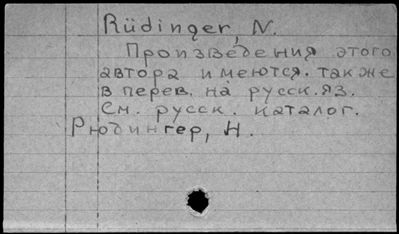 Rüdinger, N.
Произведения этого
автора имеются также
в перев. на русск. яз.
См. русск. каталог.
Рюдингер, Н.